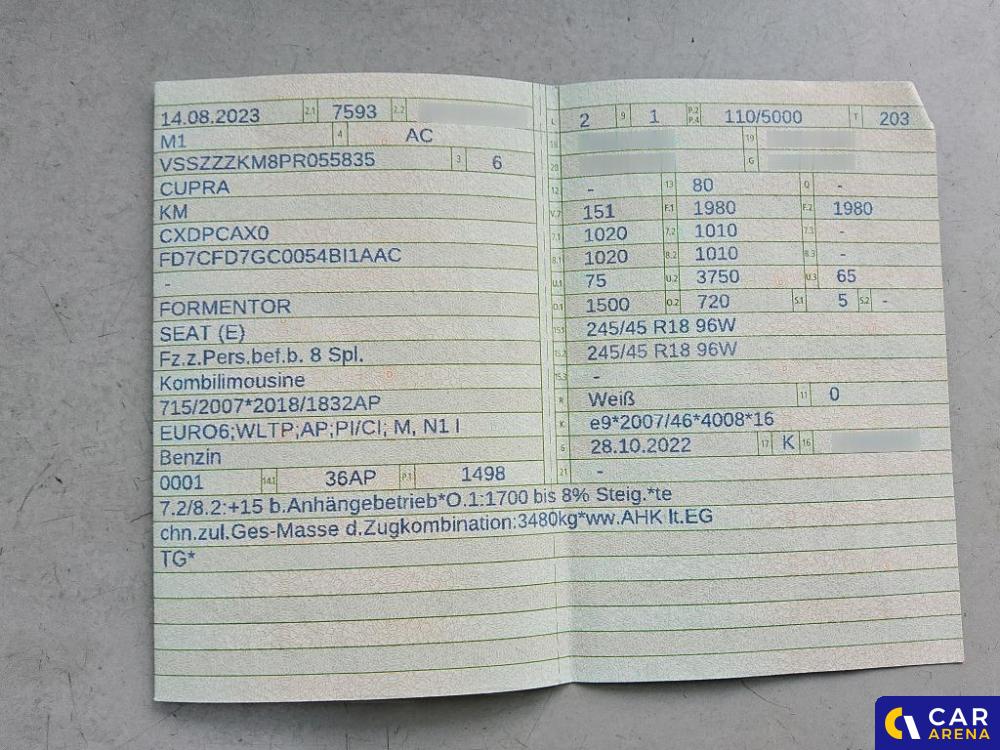 14.08.2023 2.1 7593 2.2
M1 4 AC
VSSZZZKM8PR055835 3 6
CUPRA
KM
CXDPCAX0
FD7CFD7GC0054BI1AAC
-
FORMENTOR
SEAT (E)
Fz.z.Pers.bef.b. 8 Spl.
Kombilimousine
715/2007*2018/1832AP
EURO6;WLTP;AP;PI/CI; M, N1 I
Benzin
0001 14.1 36AP P.1 1498
L 2 9 1 P.2 P.4 110/5000 T 203
18 19
20 G
12 - 13 80 Q -
V.7 151 F.1 1980 F.2 1980
7.1 1020 7.2 1010 7.3 -
8.1 1020 8.2 1010 8.3 -
U.1 75 U.2 3750 U.3 65
O.1 1500 O.2 720 S.1 5 S.2 -
15.1 245/45 R18 96W
15.2 245/45 R18 96W
15.3 -
R Weiß 11 0
K e9*2007/46*4008*16
6 28.10.2022 17 K 16
21 -
7.2/8.2:+15 b.Anhängebetrieb*O.1:1700 bis 8% Steig.*te
chn.zul.Ges-Masse d.Zugkombination:3480kg*ww.AHK lt.EG
TG*
CAR
ARENA